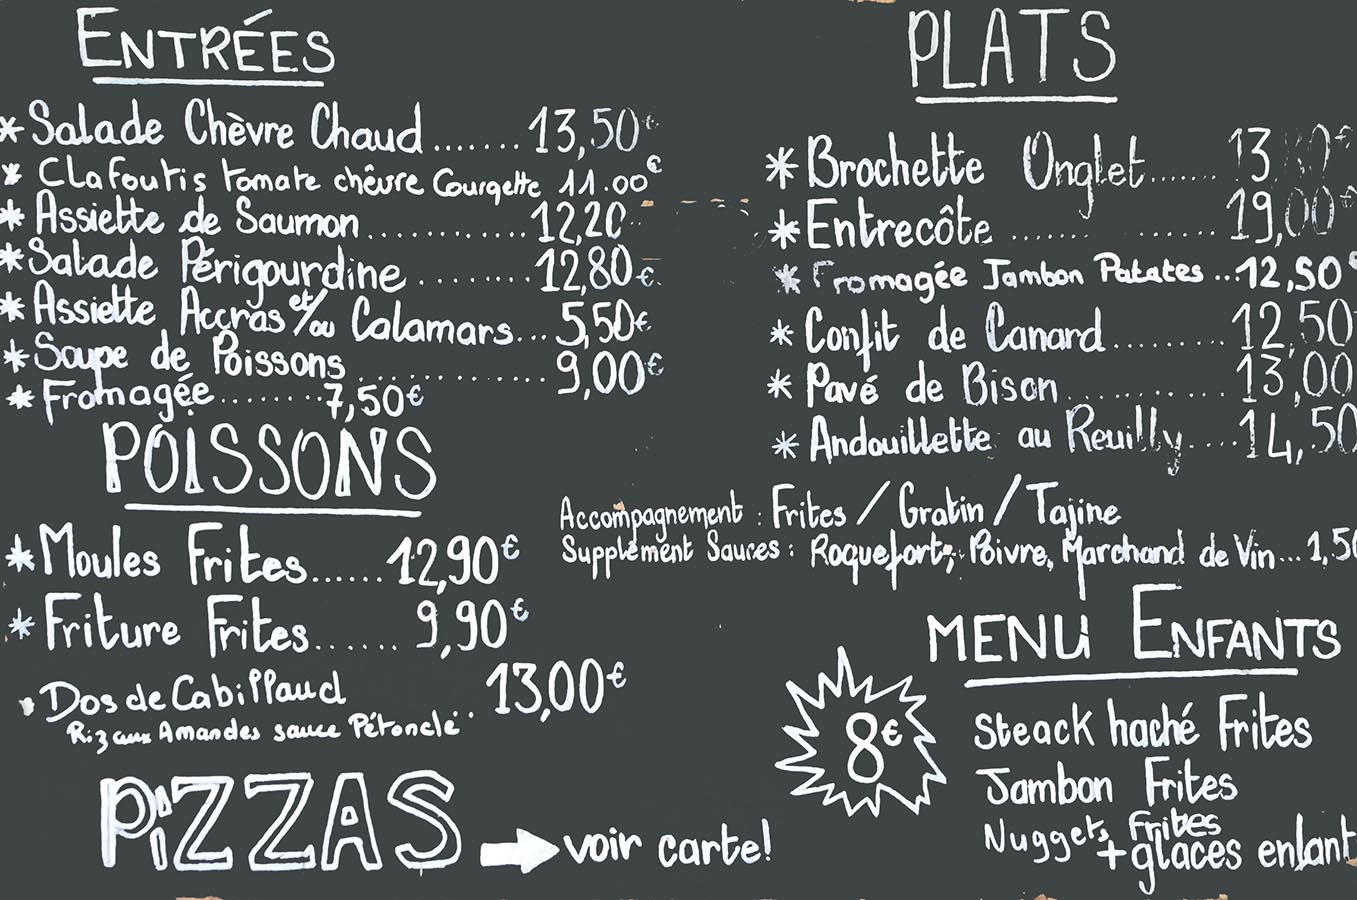 ENTRÉES
* Salade Chèvre Chaud ....... 13,50€
* Clafoutis tomate chèvre Courgette 11.00€
* Assiette de Saumon ............ 12,20
* Salade Périgourdine ........ 12,80€
* Assiette Accras et/ou Calamars... 5,50€
* Soupe de Poissons ............. 9,00€
* Fromagée ........ 7,50€
POISSONS
* Moules Frites ...... 12,90€
* Friture Frites ...... 9,90€
* Dos de Cabillaud .. 13,00€
Riz aux Amandes sauce Pétoncle
PiZZAS → voir carte!
PLATS
* Brochette Onglet ...... 13
* Entrecôte ............ 19,00€
* Fromagée Jambon Patates .. 12,50€
* Confit de Canard ......... 12,50
* Pavé de Bison ........... 13,00
* Andouillette au Reuilly .... 14,50
Accompagnement : Frites / Gratin / Tajine
Supplément Sauces : Roquefort, Poivre, Marchand de Vin... 1,50
MENU ENFANTS
8€
Steack haché Frites
Jambon Frites
Nuggets Frites
+ glaces enfant